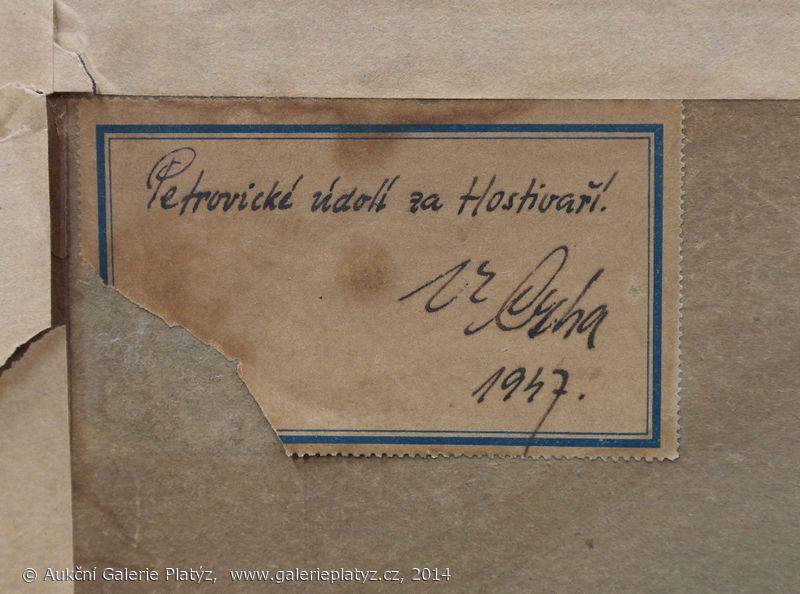 Petrovické údolí za Hostivaří.
1947.
© Aukční Galerie Platýz, www.galerieplatyz.cz, 2014